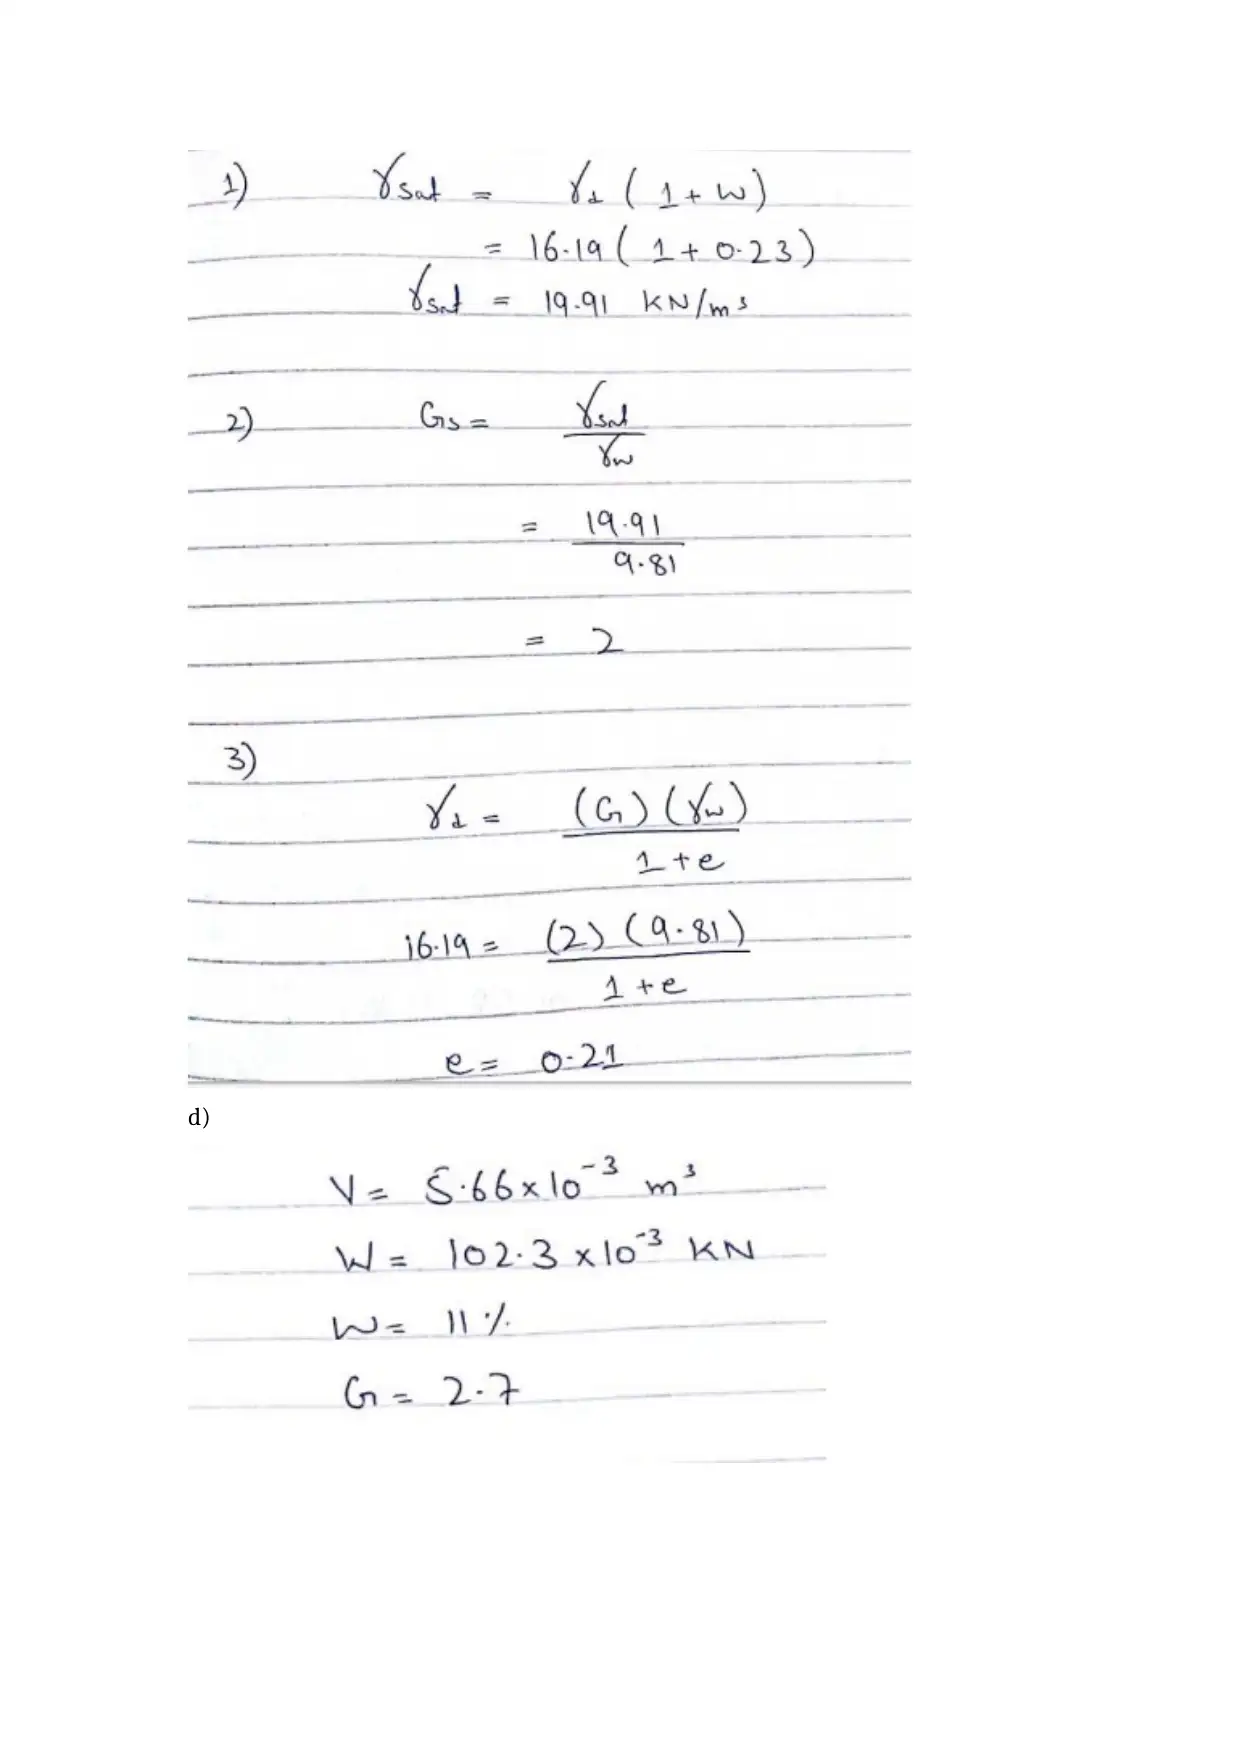 1) γsat = γd (1+w)
= 16.19 (1+0.23)
γsat = 19.91 KN/m³
2) Gs = γsat/γw
= 19.91/9.81
= 2
3)
γd = (G)(γw)/1+e
16.19 = (2)(9.81)/1+e
e = 0.21
d)
V = 5.66×10⁻³ m³
W = 102.3×10⁻³ KN
w = 11%
G = 2.7